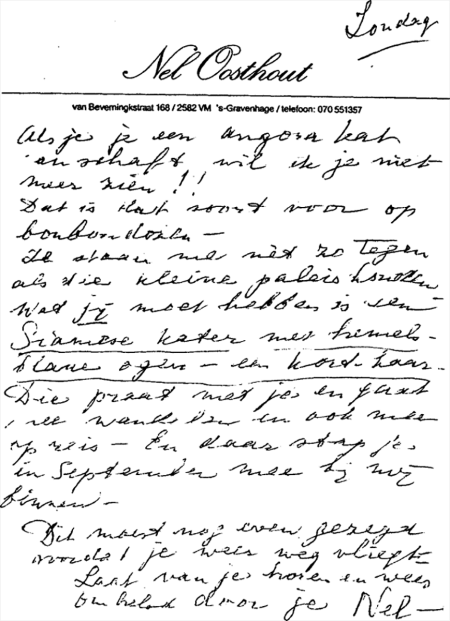 Zondag
Nel Oosthout
van Beverningkstraat 168 / 2582 VM 's-Gravenhage / telefoon: 070 551357
Als je je een angora kat
aanschaft, wil ik je niet
meer zien!!
Dat is dat soort voor op
bonbondozen —
Ze staan me net zo tegen
als die kleine paleishonden
Wat jij moet hebben is een
Siamese kater met hemels-
blauwe ogen — een kort-haar.
Die praat met je en gaat
mee wandelen en ook mee
op reis — En daar stap je
in September mee bij mij
binnen —
Dit moest nog even gezegd
voordat je weer weg vliegt
Laat van je horen en wees
omhelsd door je Nel —